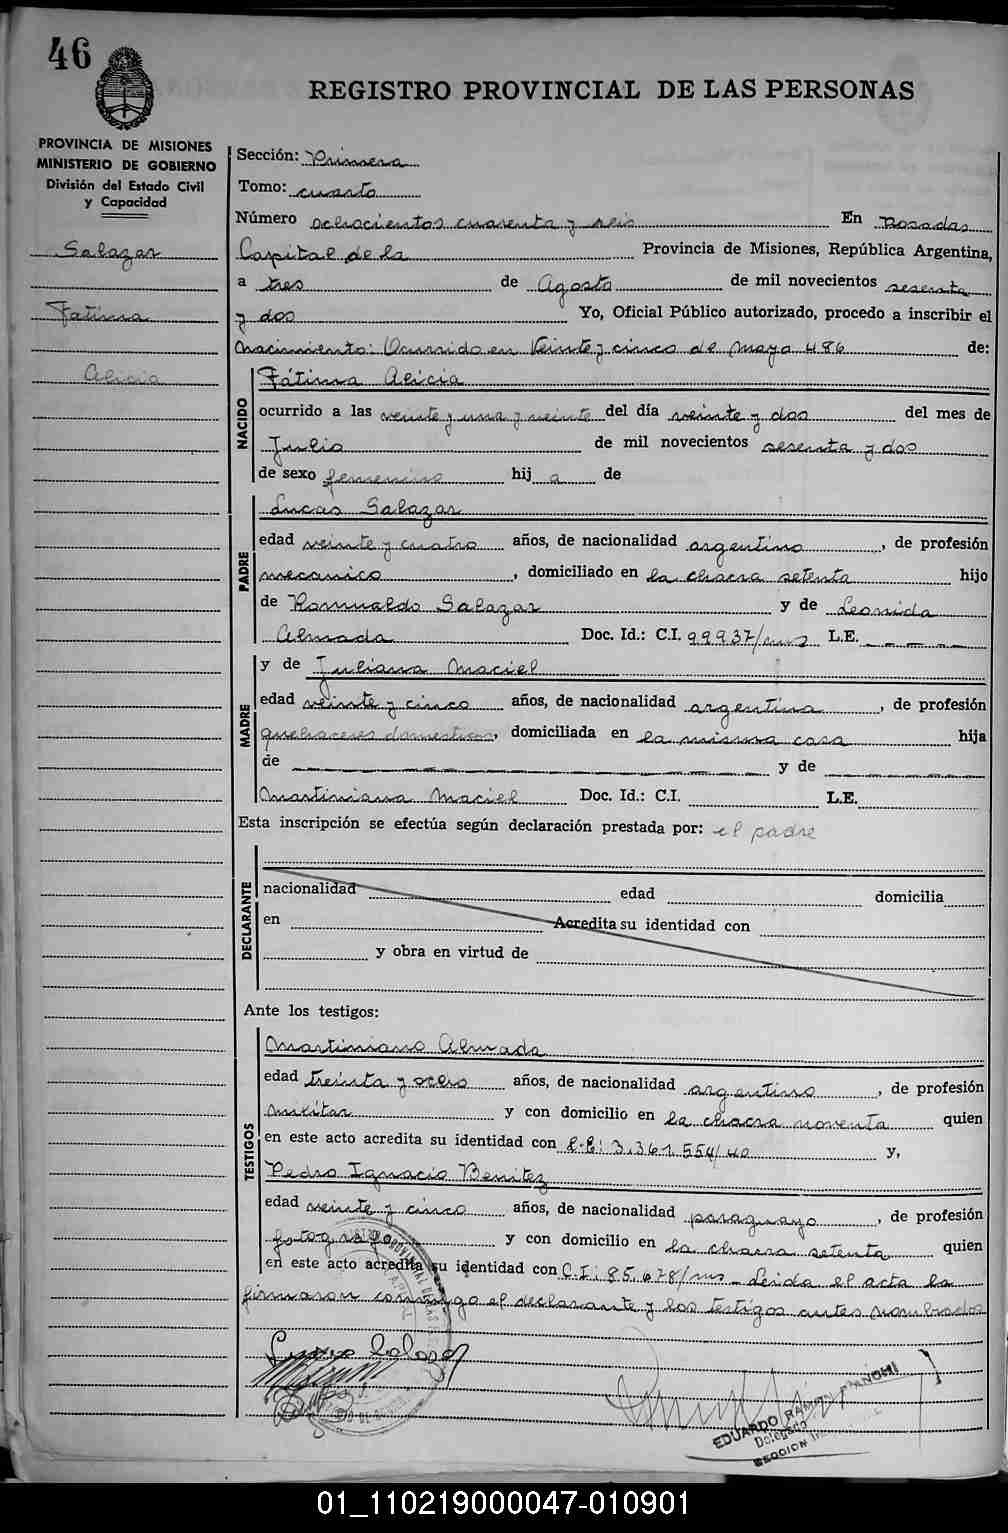 46
REGISTRO PROVINCIAL DE LAS PERSONAS
PROVINCIA DE MISIONES
MINISTERIO DE GOBIERNO
División del Estado Civil
y Capacidad
Salazar
Fatima
Alicia
Sección: Primera
Tomo: cuarto
Número ochocientos cuarenta y seis En Posadas
Capital de la Provincia de Misiones, República Argentina,
a tres de Agosto de mil novecientos sesenta
y dos Yo, Oficial Público autorizado, procedo a inscribir el
Nacimiento: Ocurrido en Veinte y cinco de Mayo 486 de:
NACIDO
Fátima Alicia
ocurrido a las veinte y una y veinte del día veinte y dos del mes de
Julio de mil novecientos sesenta y dos
de sexo femenino hij a de
PADRE
Lucas Salazar
edad veinte y cuatro años, de nacionalidad argentino, de profesión
mecanico, domiciliado en la chacra setenta hijo
de Romualdo Salazar y de Leonida
Almada Doc. Id.: C.I. 99937/mns L.E.
MADRE
y de Juliana Maciel
edad veinte y cinco años, de nacionalidad argentina, de profesión
quehaceres domesticos, domiciliada en la misma casa hija
de y de
Martiniana Maciel Doc. Id.: C.I. L.E.
Esta inscripción se efectúa según declaración prestada por: el padre
DECLARANTE
nacionalidad edad domicilia
en Acredita su identidad con
y obra en virtud de
Ante los testigos:
TESTIGOS
Martiniano Almada
edad treinta y ocho años, de nacionalidad argentino, de profesión
militar y con domicilio en la chacra noventa quien
en este acto acredita su identidad con L.E: 3.361.554/40 y,
Pedro Ignacio Benitez
edad veinte y cinco años, de nacionalidad paraguayo, de profesión
fotografo y con domicilio en la chacra setenta quien
en este acto acredita su identidad con C.I: 85.678/mns _ Leida el acta la
firmaron conmigo el declarante y los testigos antes nombrados
EDUARDO RAMON
Delegado
SECCION
01_110219000047-010901